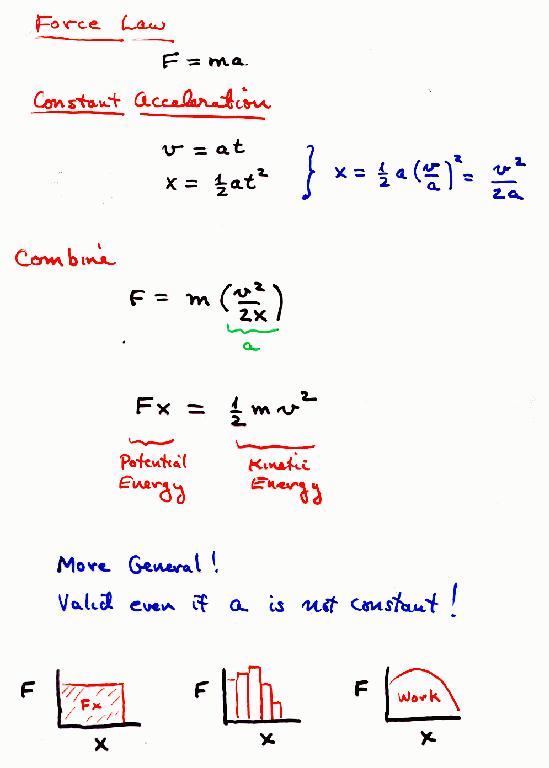 Force Law
F = ma
Constant Acceleration
v = at
x = ½at² } x = ½ a (v/a)² = v²/2a
Combine
F = m (v²/2x)
a
Fx = ½ m v²
Potential Energy Kinetic Energy
More General!
Valid even if a is not constant!
F Fx x
F x
F Work x